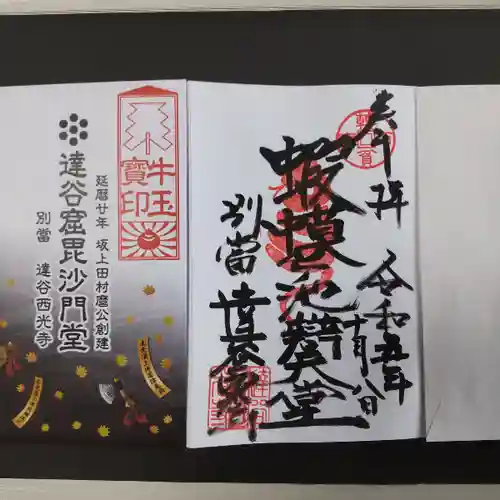 奉拝
令和五年
十月八日
蝦蟆池辯天堂
別當
達谷西光寺
牛玉
寶印
延暦廿年 坂上田村麿公創建
達谷窟毘沙門堂
別當 達谷西光寺